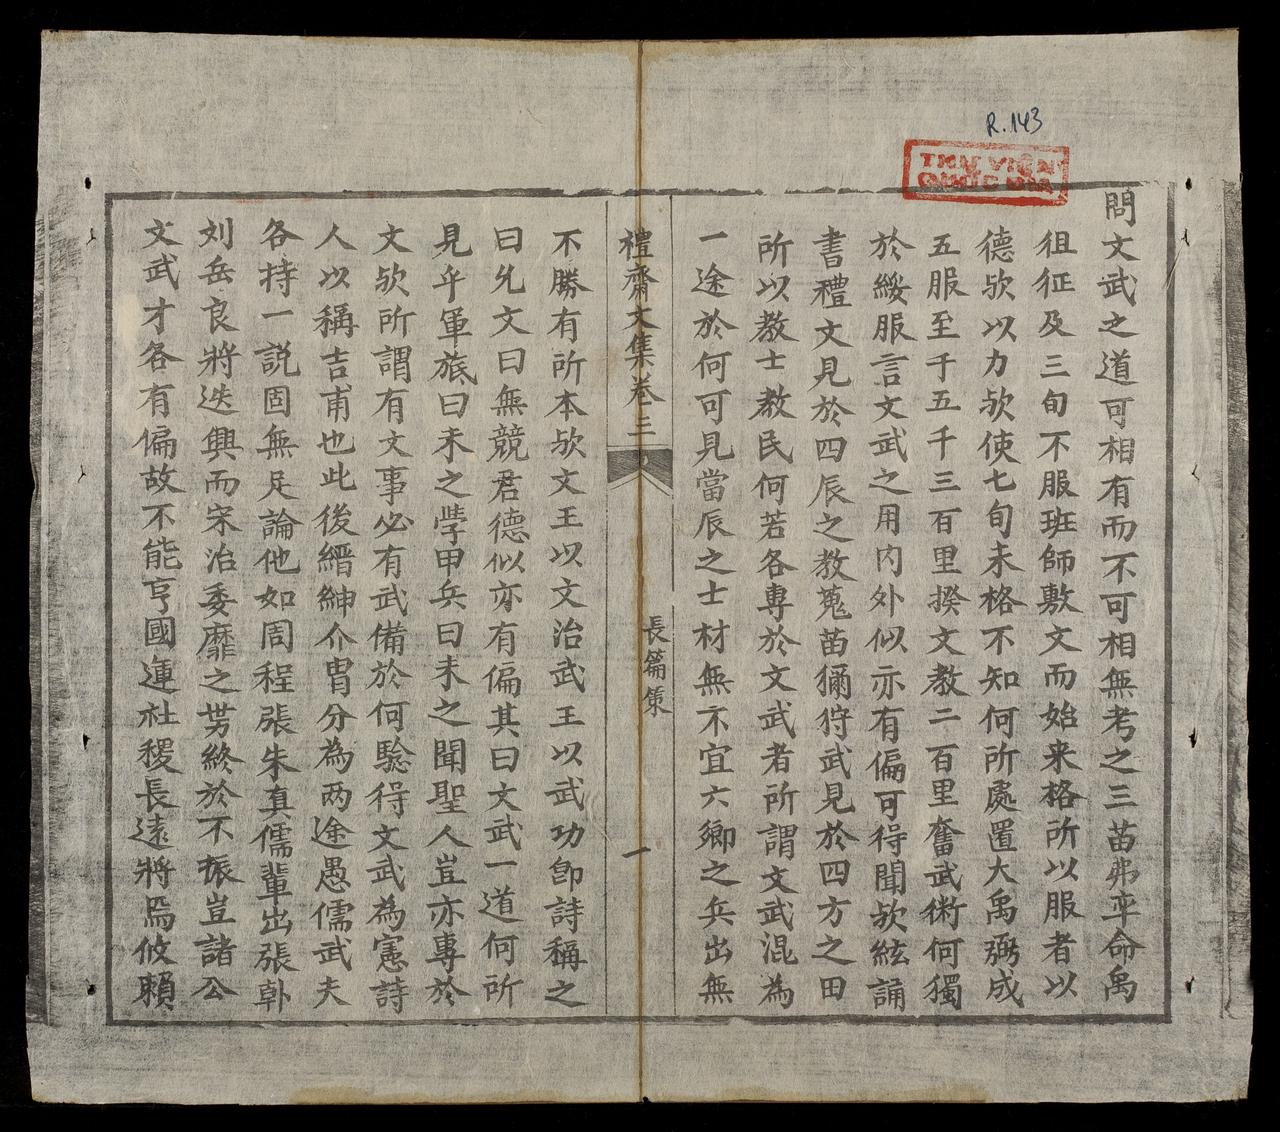 R.143
THƯ VIỆN
QUỐC GIA
問文武之道可相有而不可相無考之三苗弗率命禹
徂征及三旬不服班師敷文而始来格所以服者以
德欤以力欤使七旬未格不知何所處置大禹弼成
五服至于五千三百里揆文教二百里奮武術何獨
於綏服言文武之用内外似亦有偏可得聞欤絃誦
書禮文見於四辰之教蒐苗獮狩武見於四方之田
所以教士教民何若各専於文武者所謂文武混為
一途於何可見當辰之士材無不宜六鄉之兵出無
禮齋文集卷之三
長篇策
一
不勝有所本欤文王以文治武王以武功卽詩稱之
曰允文曰無競君德似亦有偏其曰文武一道何所
見乎軍旅曰未之學甲兵曰未之聞聖人豈亦専於
文欤所謂有文事必有武備於何驗得文武為憲詩
人以稱吉甫也此後縉紳介胄分為两途愚儒武夫
各持一説固無足論他如周程張朱真儒輩出張韓
刘岳良將迭興而宋治委靡之势終於不振豈諸公
文武才各有偏故不能亨國運社稷長遠將焉攸賴